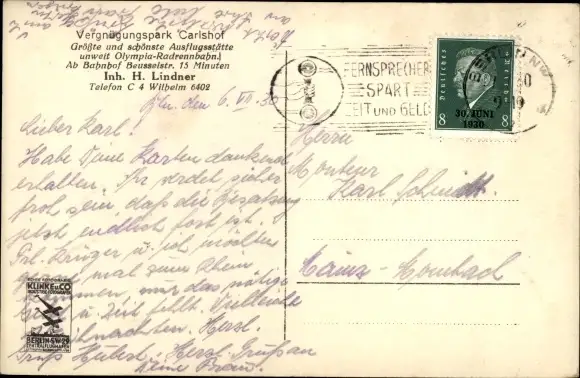 Vergnügungspark Carlshof
Größte und schönste Ausflugsstätte
unweit Olympia-Radrennbahn!
Ab Bahnhof Beusselstr. 15 Minuten
Inh. H. Lindner
Telefon C 4 Wilhelm 6402
Bln. den 6. VII. 30
Lieber Karl!
Habe Deine Karten dankend
erhalten. Ihr werdet sicher
froh sein, daß die Besatzung
jetzt endlich fort ist.
Frl. Krüger u. ich möchten
mal zum Rhein
kommen, nur das nötige
u. Zeit fehlt. Vielleicht
Weihnachten. Herzl.
Gruß Herzl. Gruß an
Deine Braut.
FERNSPRECHER
SPART
ZEIT UND GELD
BERLIN NW
Deutsches
8 8
30. JUNI
1930
Herrn
Monteur
Karl Schmidt.
Mainz-Mombach
KLINKE & CO
BERLIN SW 29
ZENTRALFLUGHAFEN